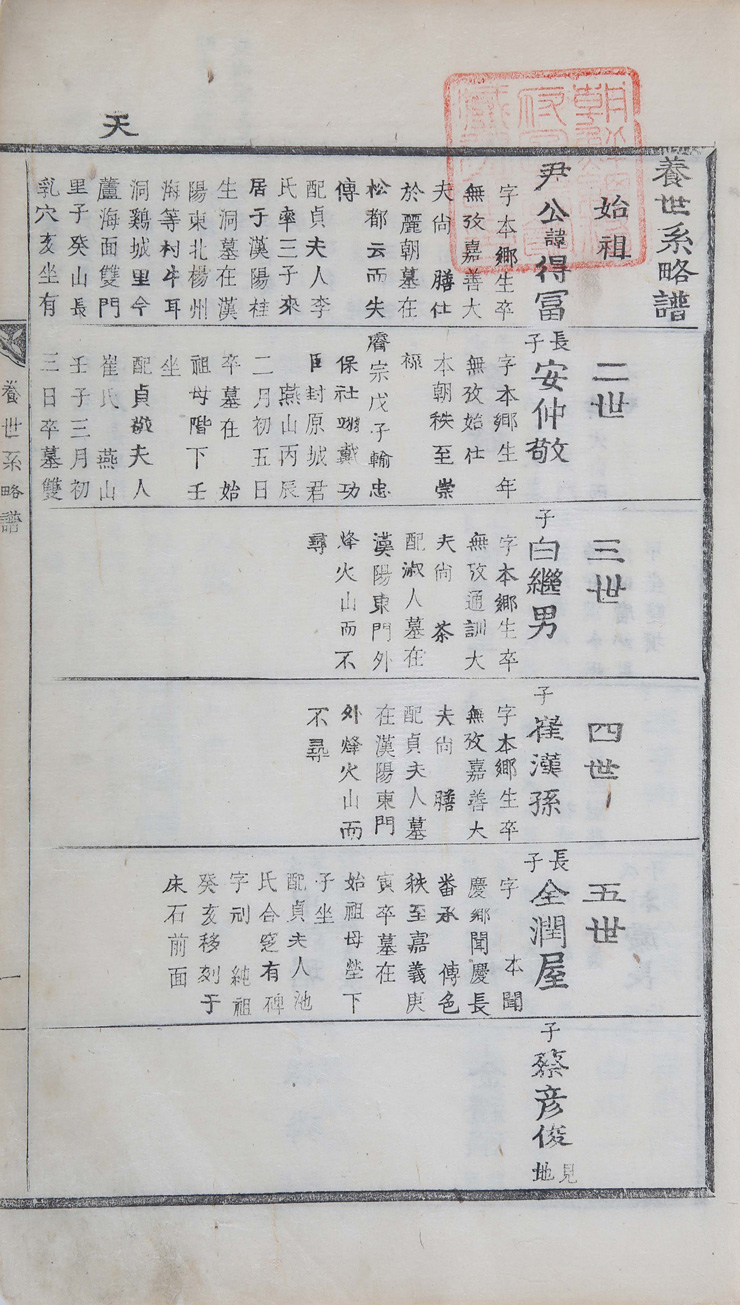 天
養世系略譜
始祖
尹公諱得富
字本鄉生卒
無攷嘉善大
夫尙膳仕
於麗朝墓在
松都云而失
傳
配貞夫人李
氏率三子來
居于漢陽桂
生洞墓在漢
陽東北楊州
海等村牛耳
洞鷄城里今
蘆海面雙門
里子癸山長
乳穴亥坐有
二世
長子安仲敬
字本鄉生年
無攷始仕
本朝秩至崇
祿
睿宗戊子輸忠
保社翊戴功
臣封原城君
燕山丙辰
二月初五日
卒墓在 始
祖母階下壬
坐
配貞敬夫人
崔氏 燕山
壬子三月初
三日卒墓雙
三世
子白繼男
字本鄉生卒
無攷通訓大
夫尙 茶
配淑人墓在
漢陽東門外
烽火山而不
尋
四世
子崔漢孫
字本鄉生卒
無攷嘉善大
夫尙 膳
配貞夫人墓
在漢陽東門
外烽火山而
不尋
五世
長子金潤屋
字 本聞
慶鄉聞慶長
番承 傳色
秩至嘉義庚
寅卒墓在
始祖母塋下
子坐
配貞夫人池
氏合窆有碑
字刓 純祖
癸亥移刻于
床石前面
子蔡彦俊
見地
養世系略譜
一